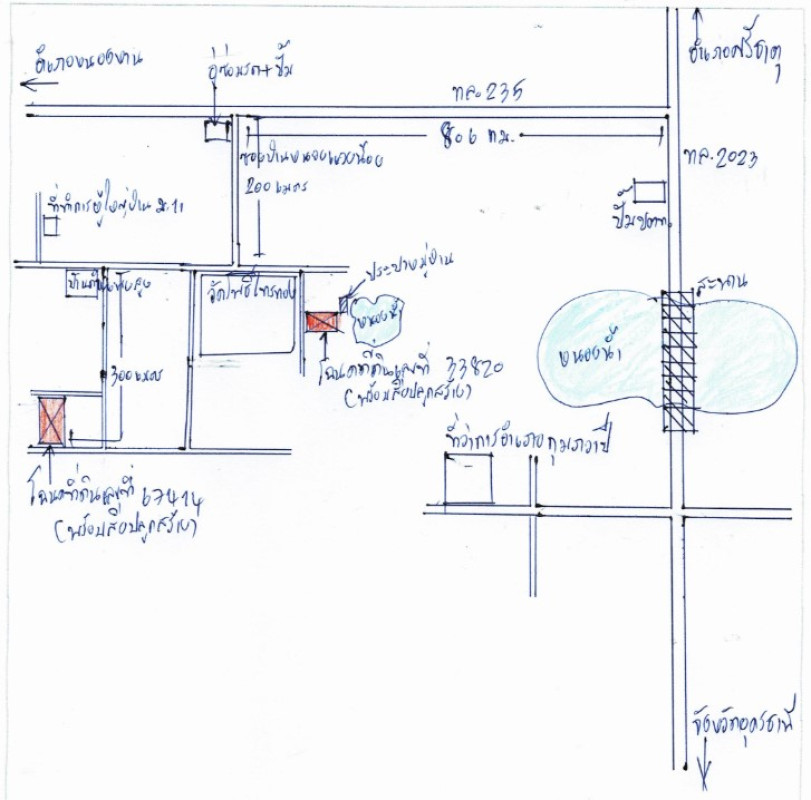 อำเภอหนองหาน
อู่ซ่อมรถ+ปั๊ม
อำเภอศรีธาตุ
ทล. 235
8.6 กม.
ซอยบ้านหนองแวงน้อย
200 เมตร
ทล. 2023
ที่ทำการผู้ใหญ่บ้าน ม.11
ปั๊มปตท.
ประปาหมู่บ้าน
สะพาน
วัดโพธิ์ไทรทอง
หนองน้ำ
หนองน้ำ
300 เมตร
โฉนดที่ดินเลขที่ 33820
(พร้อมสิ่งปลูกสร้าง)
ที่ว่าการอำเภอกุมภวาปี
โฉนดที่ดินเลขที่ 67414
(พร้อมสิ่งปลูกสร้าง)
จังหวัดอุดรธานี